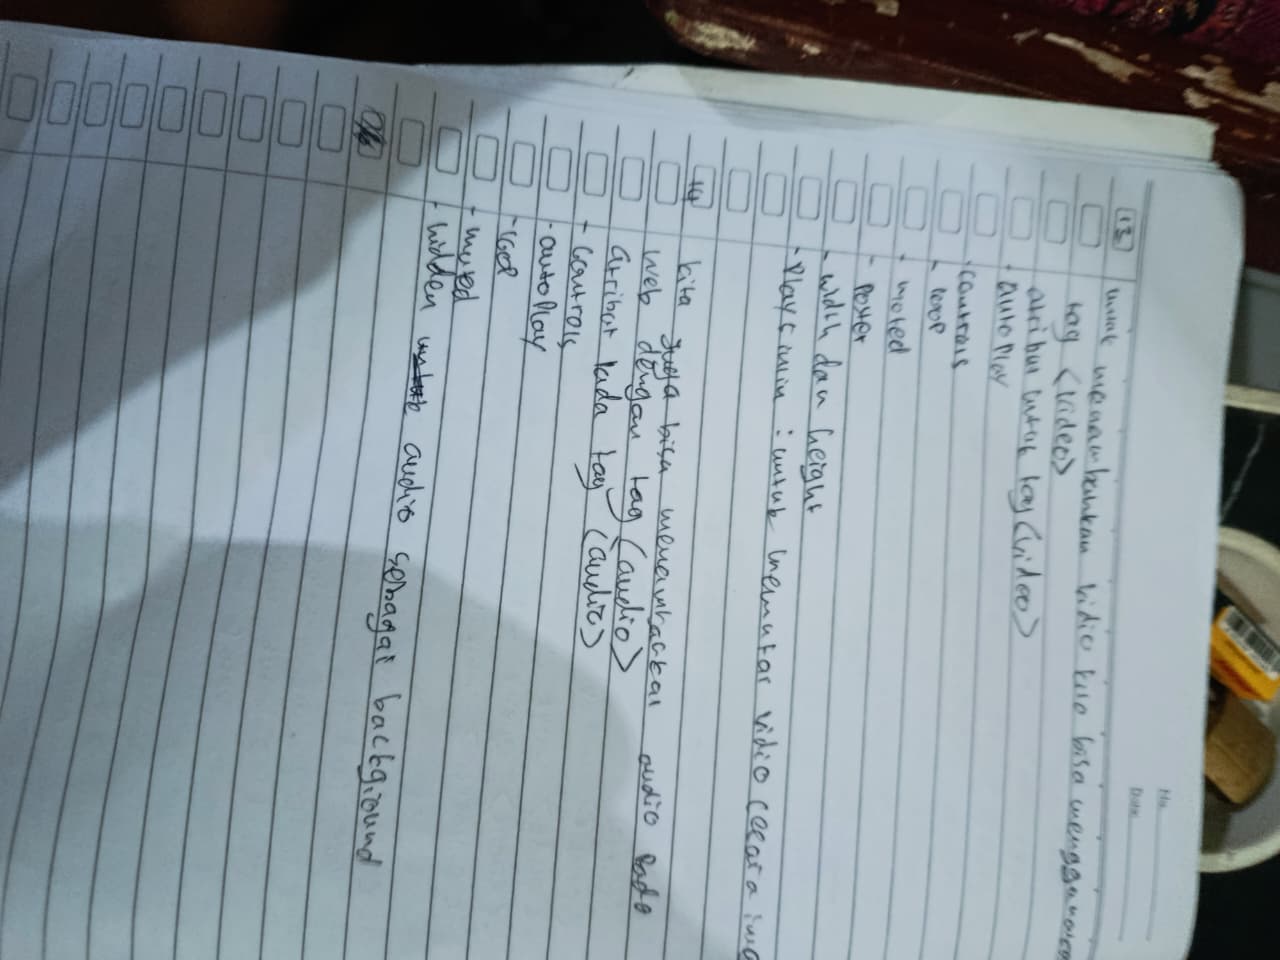 No
Date
13 untuk menambahkan vidio kita bisa menggunaka
tag <video>
atribut untuk tag <video>
- autoplay
- controls
- loop
- muted
- poster
- width dan height
- Playsinline : untuk memutar vidio secara
14 kita juga bisa menambahkan audio pada
web dengan tag <audio>
atribut pada tag <audio>
- controls
- autoplay
- loop
- muted
- hidden audio sebagai background